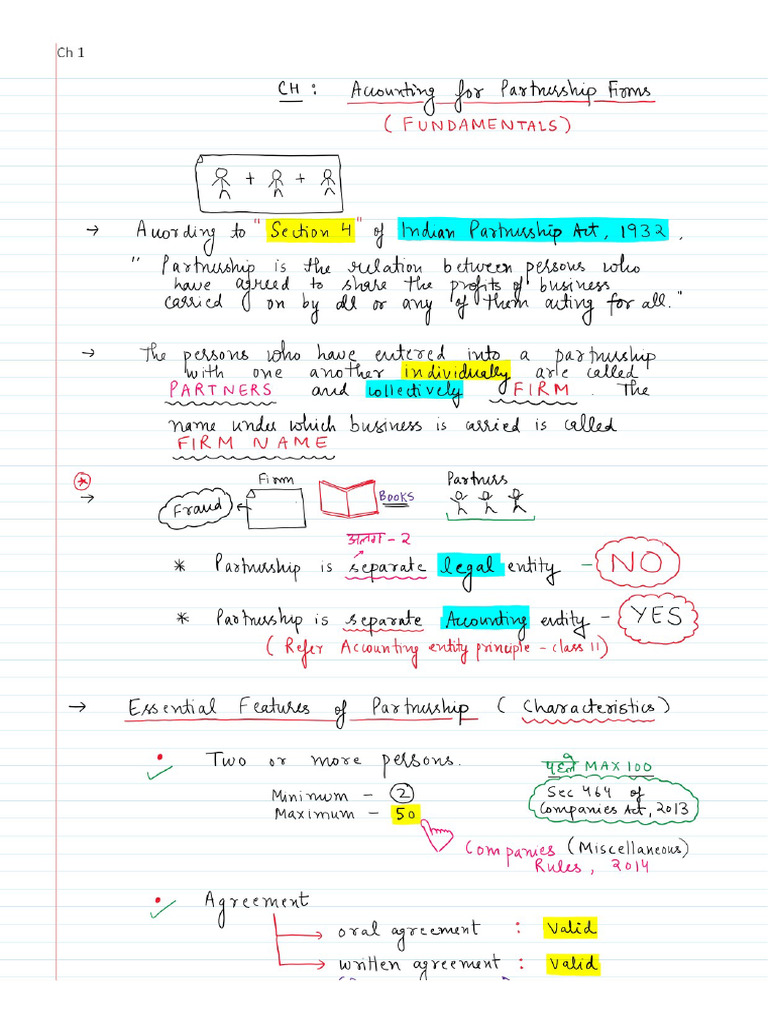 Ch 1
CH : Accounting for Partnership Firms
(FUNDAMENTALS)
→ According to "Section 4" of Indian Partnership Act, 1932,
" Partnership is the relation between persons who
have agreed to share the profits of business
carried on by all or any of them acting for all."
→ The persons who have entered into a partnership
with one another individually are called
PARTNERS and collectively FIRM. The
name under which business is carried is called
FIRM NAME
Firm Partners
Fraud BOOKS
अलग-२
* Partnership is separate legal entity - NO
* Partnership is separate Accounting entity - YES
(Refer Accounting entity principle - class 11)
→ Essential Features of Partnership (Characteristics)
• Two or more persons.
पहले MAX 100
Minimum - 2
Sec 464 of
Maximum - 50
Companies Act, 2013
Companies (Miscellaneous)
Rules, 2014
• Agreement
→ oral agreement : Valid
→ written agreement : Valid